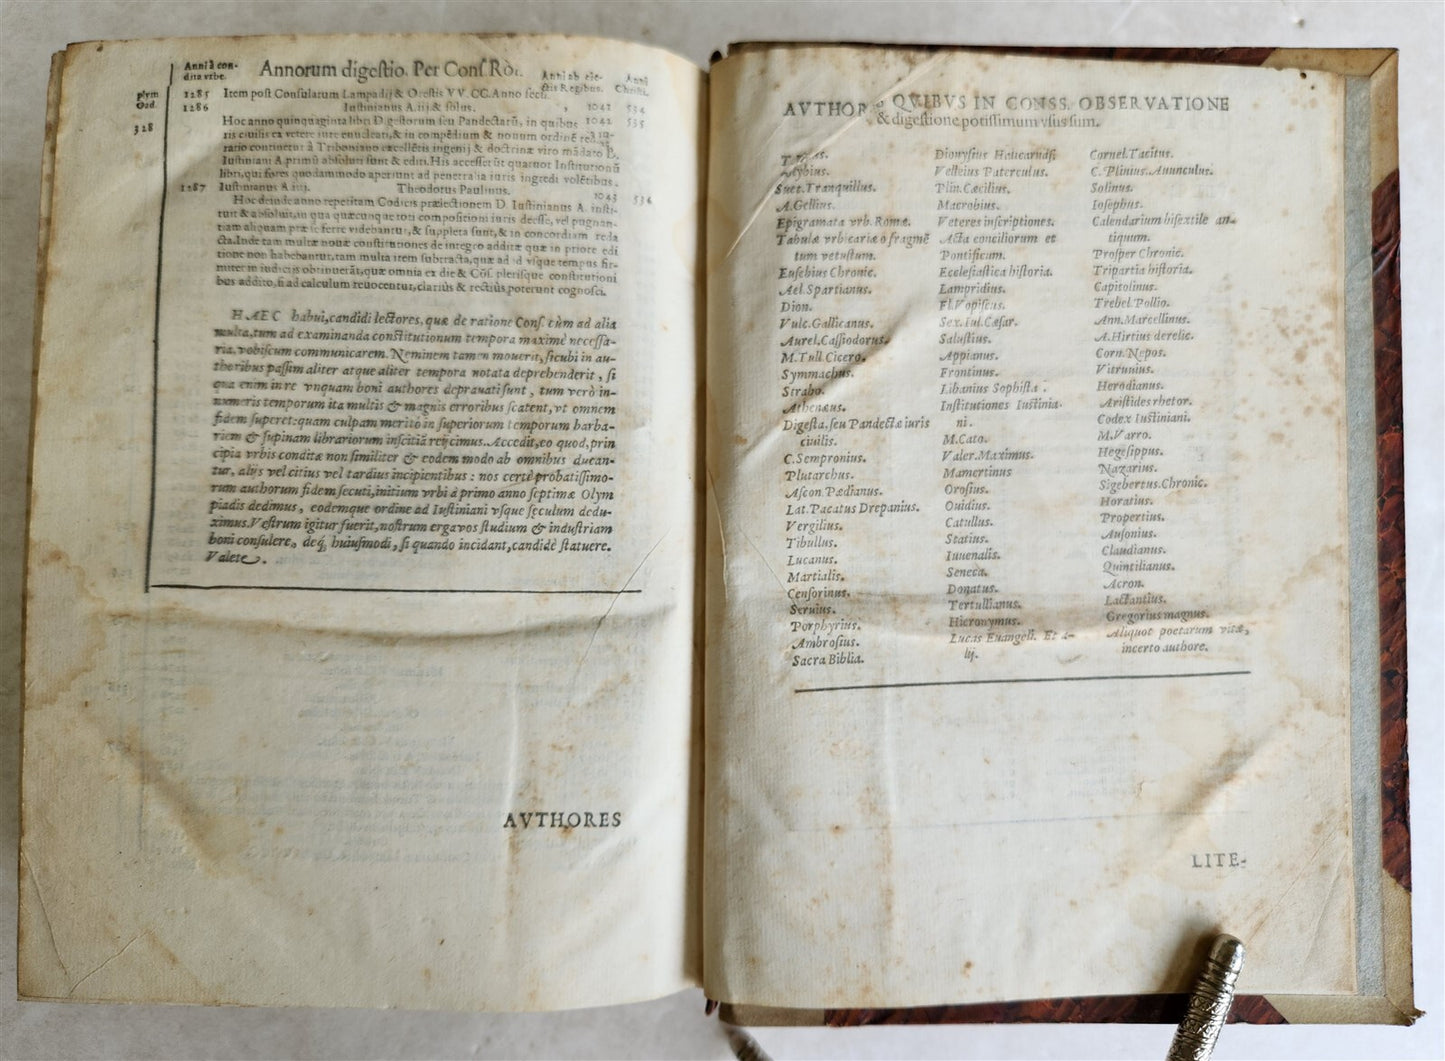 Anni à con-
dita vrbe.
Annorum digestio. Per Conſ. Rò.
Anni ab ele-
ctis Regibus.
Anni
Christi.
olym
Oad.
1285 Item post Conſulatum Lampadij & Oreſtis VV. CC. Anno ſecū.
1286 Iuſtinianus A. iij & ſolus. 1041 534
Hoc anno quinquaginta libri Digeſtorum ſeu Pandectarū, in quibus 1042 535
328
ris ciuilis ex vetere iure enucleati, & in compēdium & nouum ordinē
ratio continetur à Triboniano excellētis ingenij & doctrinæ viro mādato D.
Iuſtiniani A. primū abſoluti ſunt & editi. His acceſſerūt quatuor Inſtitutionū
libri, qui fores quodammodo aperiunt ad penetralia iuris ingredi volētibus.
1287 Iuſtinianus A iiij. Theodorus Paulinus. 1043 536
Hoc deinde anno repetitam Codicis prælectionem D. Iuſtinianus A. inſti-
tuit & abſoluit, in qua quæcunque toti compoſitioni iuris deeſſe, vel pugnan-
tiam aliquam præ ſe ferre videbantur, & ſuppleta ſunt, & in concordiam reda
cta. Inde tam multæ nouæ conſtitutiones de integro additæ quæ in priore edi
tione non habebantur, tam multa item ſubtracta, quæ ad id vſque tempus fir-
miter in iudicijs obtinuerāt, quæ omnia ex die & Cōſ. pleriſque conſtitutioni
bus addito, ſi ad calculum reuocentur, clarius & rectius poterunt cognoſci.
HAEC habui, candidi lectores, quæ de ratione Conſ. cùm ad alia
multa, tum ad examinanda conſtitutionum tempora maximè neceſſa-
ria, vobiſcum communicarem. Neminem tamen mouerit, ſicubi in au-
thoribus paſſim aliter atque aliter tempora notata deprehenderit, ſi
qua enim in re vnquam boni authores deprauati ſunt, tum verò in-
numeris temporum ita multis & magnis erroribus ſcatent, vt omnem
fidem ſuperet: quam culpam meritò in ſuperiorum temporum barba-
riem & ſupinam librariorum inſcitiā reijcimus. Accedit, eo quod, prin
cipia vrbis conditæ non ſimiliter & eodem modo ab omnibus ducan-
tur, alijs vel citius vel tardius incipientibus: nos certè probatiſſimo-
rum authorum fidem ſecuti, initium vrbi à primo anno ſeptimæ Olym
piadis dedimus, eodemque ordine ad Iuſtiniani vſque ſeculum dedu-
ximus. Veſtrum igitur fuerit, noſtrum erga vos ſtudium & induſtriam
boni conſulere, deq́; huiuſmodi, ſi quando incidant, candidè ſtatuere.
Valete.
AVTHORES
QVIBVS IN CONSS. OBSERVATIONE
& digeſtione potiſſimum vſus ſum.
Suet. Tranquillus.
A. Gellius.
Epigramata vrb. Romæ.
Tabulæ vrbicariæ o fragmē
tum vetuſtum.
Euſebius Chronic.
Ael. Spartianus.
Dion.
Vulc. Gallicanus.
Aurel. Caſſiodorus.
M. Tull. Cicero.
Symmachus.
Strabo.
Athenæus.
Digeſta, ſeu Pandectæ iuris
ciuilis.
C. Sempronius.
Plutarchus.
Aſcon. Pædianus.
Lat. Pacatus Drepanius.
Vergilius.
Tibullus.
Lucanus.
Martialis.
Cenſorinus.
Seruius.
Porphyrius.
Ambroſius.
Sacra Biblia.
Dionyſius Halicarnaſſ.
Velleius Paterculus.
Plin. Cæcilius.
Macrobius.
Veteres inſcriptiones.
Acta conciliorum et
Pontificum.
Eccleſiaſtica hiſtoria.
Lampridius.
Fl. Vopiſcus.
Sex. Iul. Cæſar.
Saluſtius.
Appianus.
Frontinus.
Libanius Sophiſta.
Inſtitutiones Iuſtinia-
ni.
M. Cato.
Valer. Maximus.
Mamertinus
Oroſius.
Ouidius.
Catullus.
Statius.
Iuuenalis.
Seneca.
Donatus.
Tertullianus.
Hieronymus.
Lucas Euangeli. Et a-
lij.
Cornel. Tacitus.
C. Plinius. Auunculus.
Solinus.
Ioſephus.
Calendarium biſextile an-
tiquum.
Proſper Chronic.
Tripartia hiſtoria.
Capitolinus.
Trebel. Pollio.
Ann. Marcellinus.
A. Hirtius derelic.
Corn. Nepos.
Vitruuius.
Herodianus.
Ariſtides rhetor.
Codex Iuſtiniani.
M. Varro.
Hegeſippus.
Nazarius.
Sigebertus. Chronic.
Horatius.
Propertius.
Auſonius.
Claudianus.
Quintilianus.
Acron.
Lactantius.
Gregorius magnus.
Aliquot poetarum vitæ,
incerto authore.
LITE-